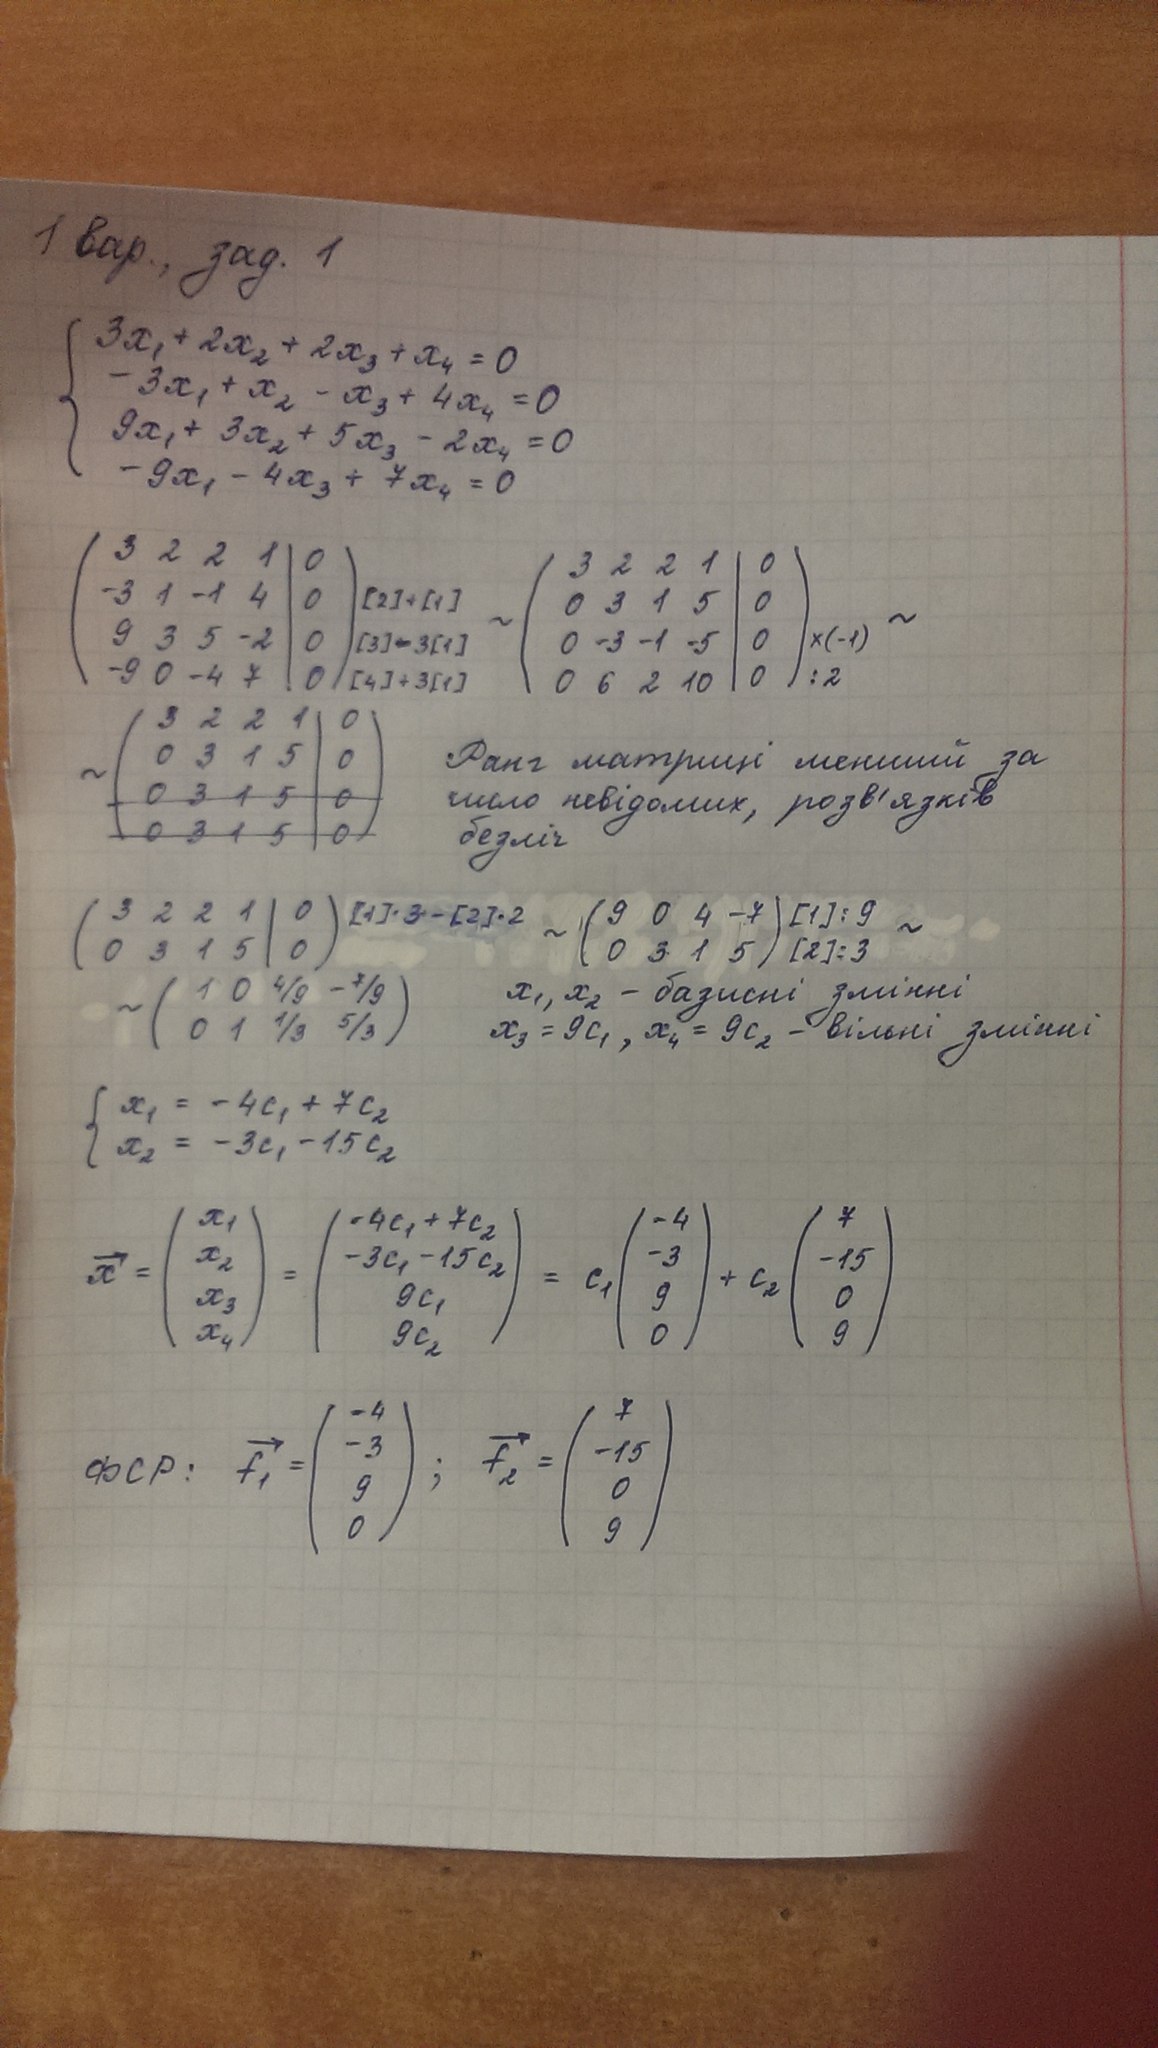 1 вар., зад. 1
3x₁ + 2x₂ + 2x₃ + x₄ = 0
-3x₁ + x₂ - x₃ + 4x₄ = 0
9x₁ + 3x₂ + 5x₃ - 2x₄ = 0
-9x₁ - 4x₃ + 7x₄ = 0
3 2 2 1 | 0
-3 1 -1 4 | 0 [2]+[1]
9 3 5 -2 | 0 [3]-3[1]
-9 0 -4 7 | 0 [4]+3[1]
~
3 2 2 1 | 0
0 3 1 5 | 0
0 -3 -1 -5 | 0 ×(-1)
0 6 2 10 | 0 :2
~
~
3 2 2 1 | 0
0 3 1 5 | 0
0 3 1 5 | 0
0 3 1 5 | 0
Ранг матриці менший за
число невідомих, розв'язків
безліч
3 2 2 1 | 0 [1]·3-[2]·2
0 3 1 5 | 0
~
9 0 4 -7 [1]:9
0 3 1 5 [2]:3
~
~
1 0 4/9 -7/9
0 1 1/3 5/3
x₁, x₂ - базисні змінні
x₃ = 9c₁, x₄ = 9c₂ - вільні змінні
x₁ = -4c₁ + 7c₂
x₂ = -3c₁ - 15c₂
x⃗ = (x₁ x₂ x₃ x₄) = (-4c₁+7c₂ -3c₁-15c₂ 9c₁ 9c₂) = c₁ (-4 -3 9 0) + c₂ (7 -15 0 9)
ФСР: f₁⃗ = (-4 -3 9 0) ; f₂⃗ = (7 -15 0 9)